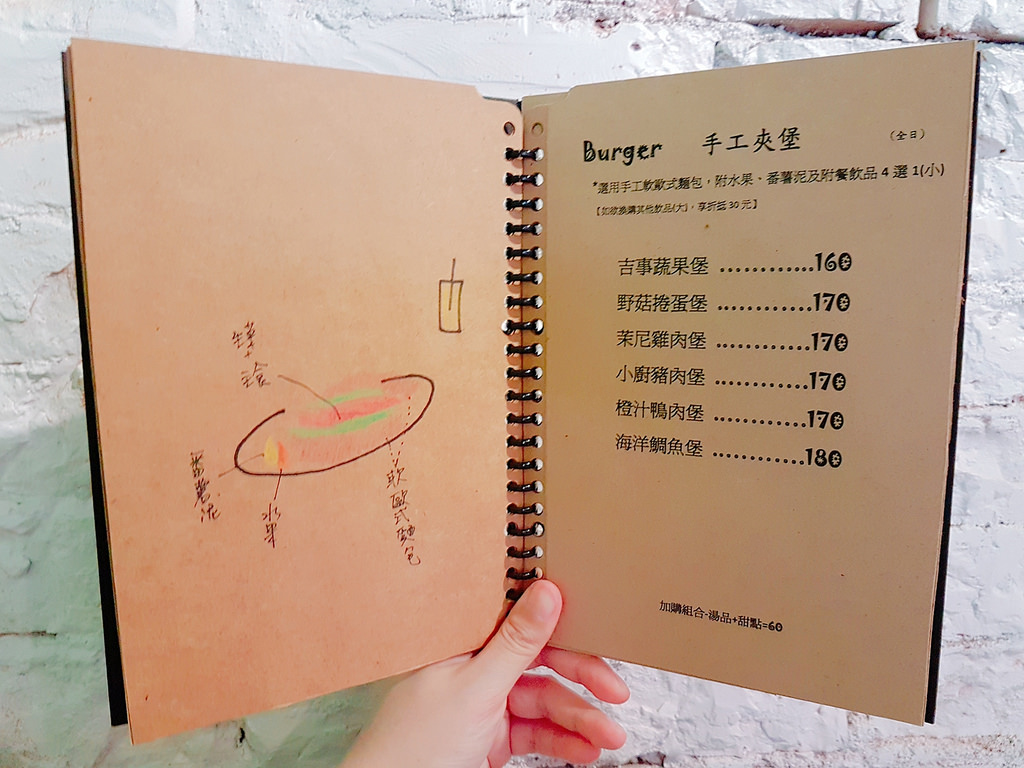 番薯泥
水果
軟歐式麵包
Burger 手工夾堡 (全日)
*選用手工軟歐式麵包，附水果、番薯泥及附餐飲品 4 選 1(小)
【如欲換購其他飲品(大)，享折抵 30 元】
吉事蔬果堡 ..............160
野菇捲蛋堡 ..............170
茉尼雞肉堡 ............170
小廚豬肉堡 ............170
橙汁鴨肉堡 ............170
海洋鯛魚堡 ............180
加購組合-湯品+甜點=60